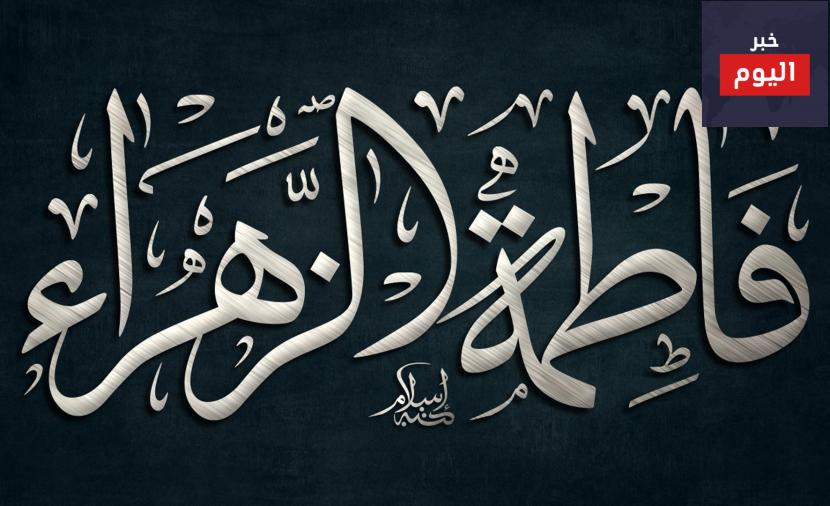 خبر
اليوم
فَاطِمَة الزَّهْرَاء
كتبه إسلام